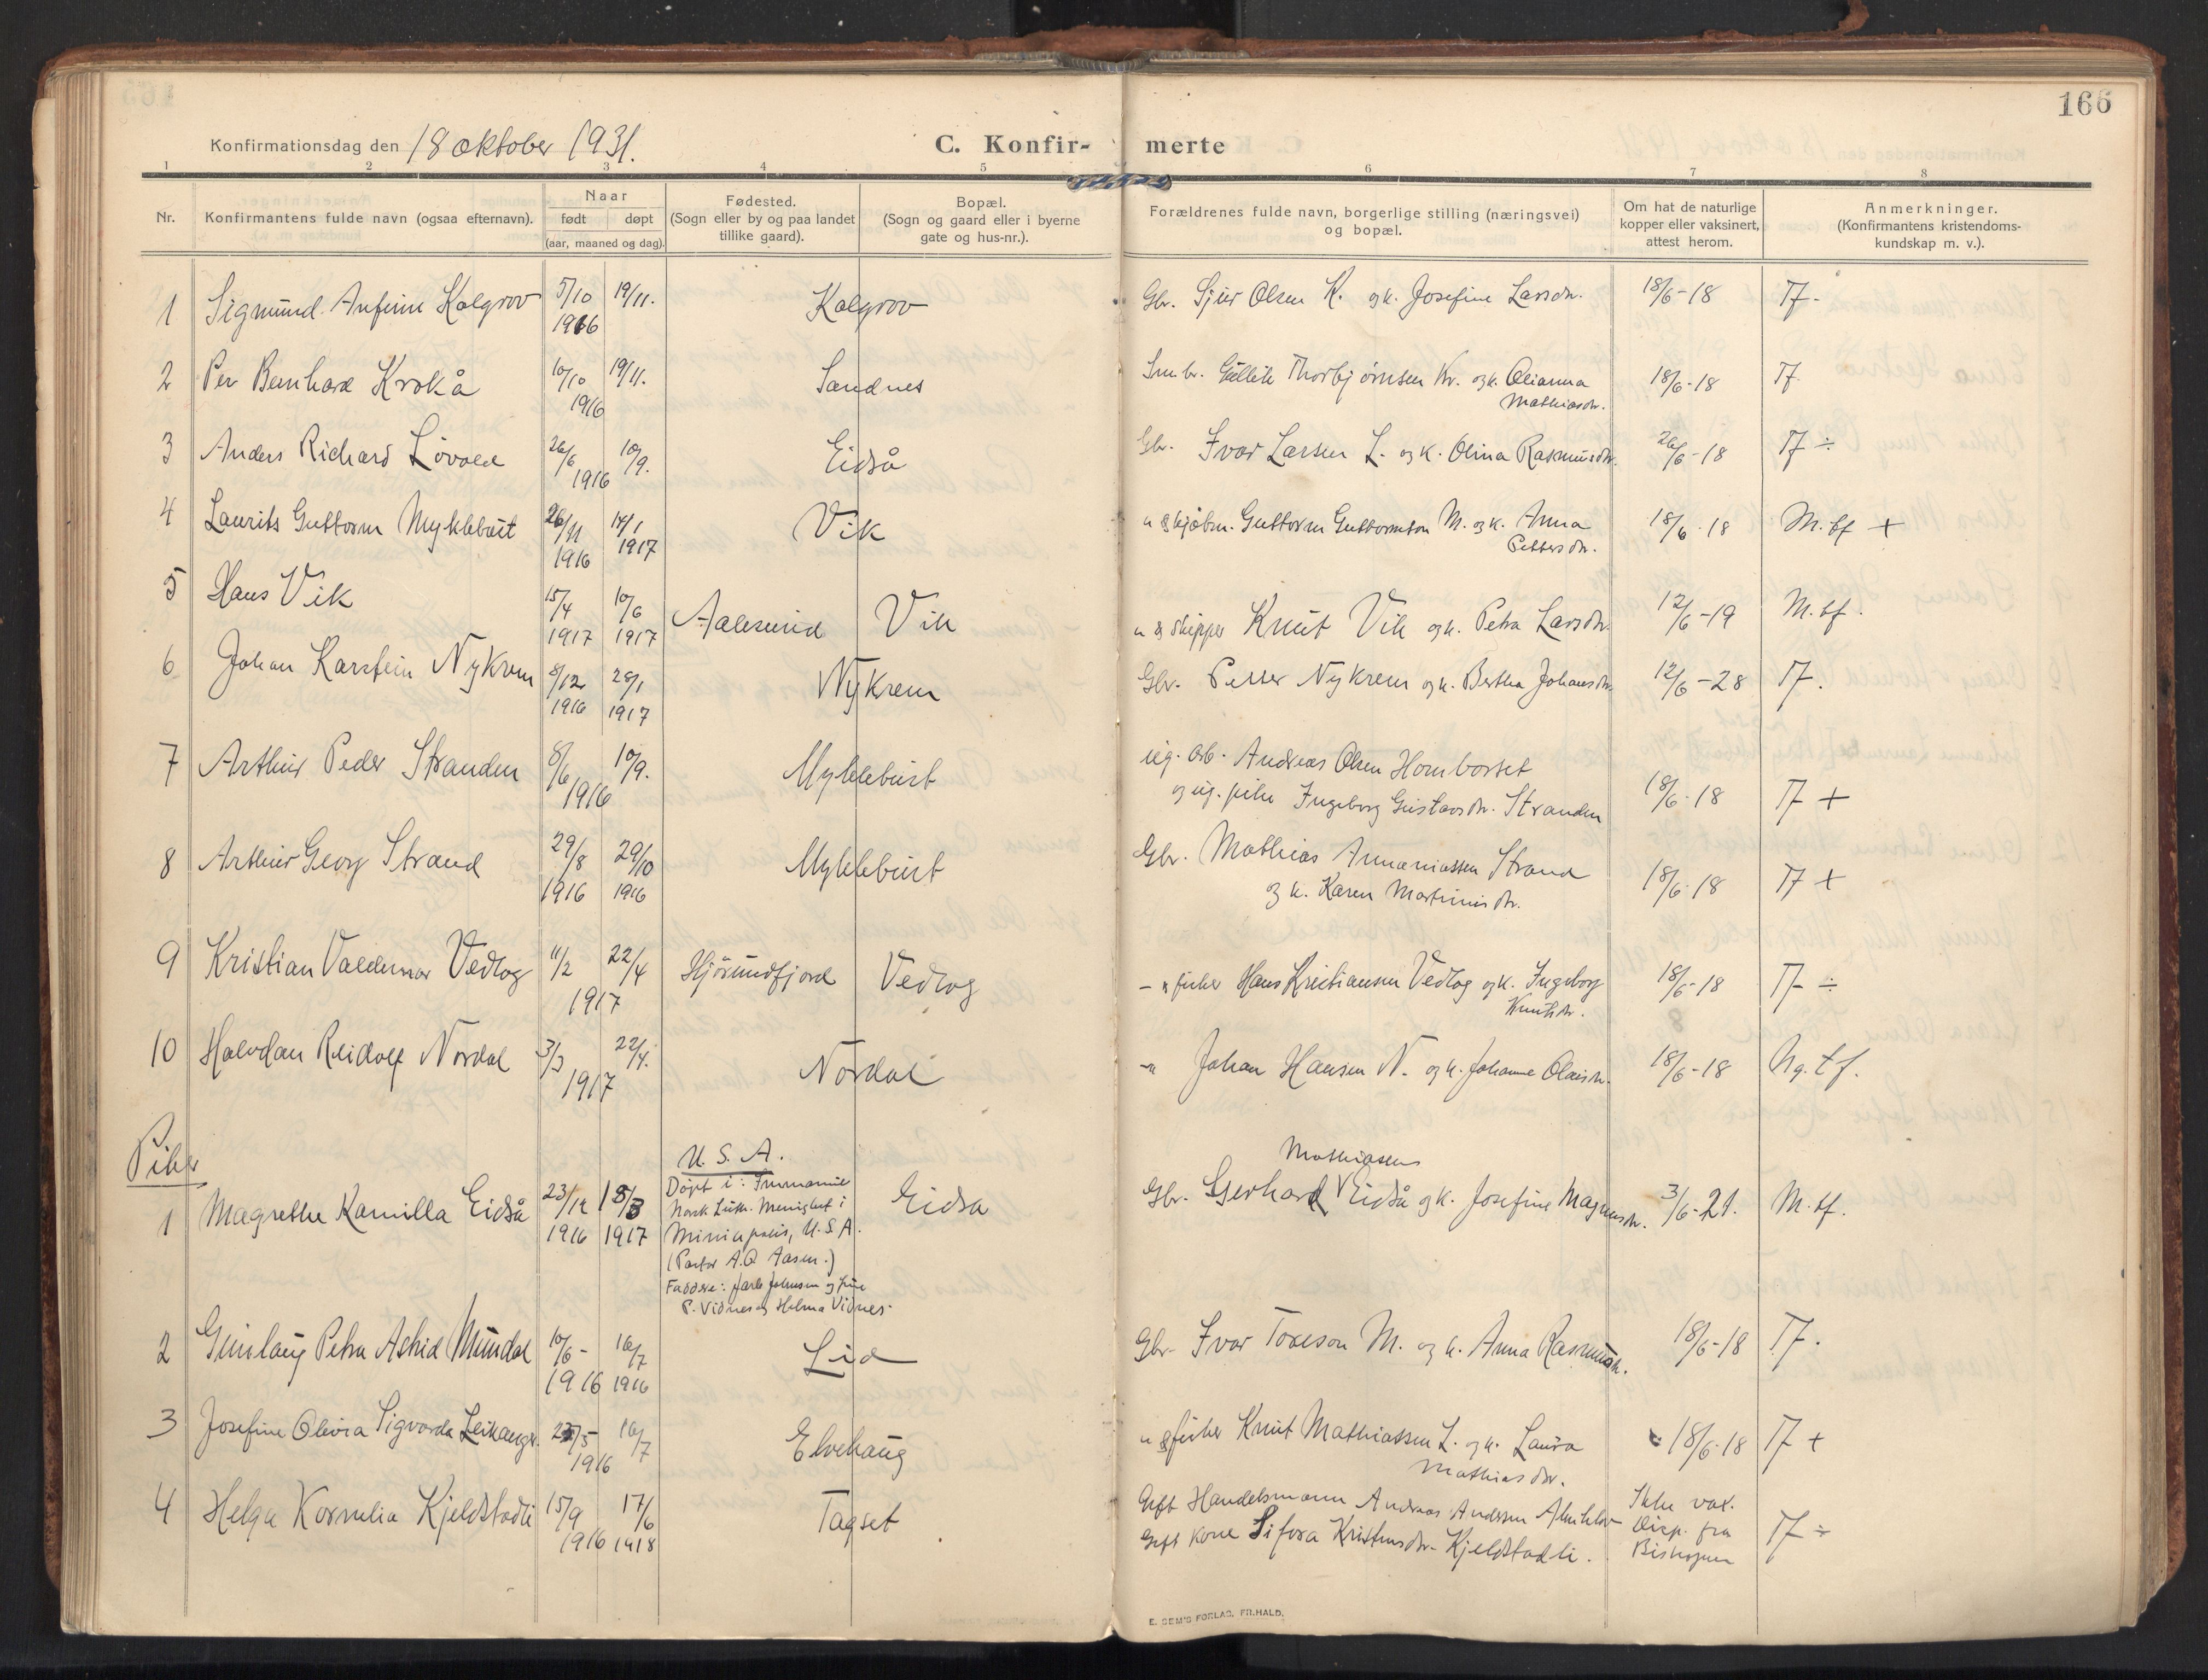 166
Konfirmationsdag den 18 oktober 1931.
C. Konfir- merte
1 2 3 4 5 6 7 8
Nr.
Konfirmantens fulde navn (ogsaa efternavn).
Naar
født døpt
(aar, maaned og dag).
Fødested.
(Sogn eller by og paa landet
tillike gaard).
Bopæl.
(Sogn og gaard eller i byerne
gate og hus-nr.).
Forældrenes fulde navn, borgerlige stilling (næringsvei)
og bopæl.
Om hat de naturlige
kopper eller vaksinert,
attest herom.
Anmerkninger.
(Konfirmantens kristendoms-
kundskap m. v.).
1 Sigmund Anfinn Kalgrov 5/10 19/11. Kalgrov Gbr. Sjur Olsen K. og k. Josefine Larsdr. 18/6-18 Tf.
1916
2 Per Bernhard Krokå 10/10 19/11. Sandnes Smbr. Gullik Thorbjørnsen Kr. og k. Olianna 18/6-18 Tf
1916 Mathiasdr.
3 Anders Richard Løvold 26/6 10/9. Eidså Gbr. Ivar Larsen L. og k. Olina Rasmusdr. 26/6-18 Tf ÷
1916
4 Laurits Guttorm Myklebust 26/11 14/1 Vik " & kjøbm. Guttorm Guttormson M. og k. Anna 18/6-18 M.tf +
1916 1917 Pettersdr.
5 Hans Vik 15/4 10/6 Aalesund Vik " & skipper Knut Vik og k. Petra Larsdr. 12/6-19 M.tf.
1917 1917
6 Johan Karstein Nykrem 8/12 28/1 Nykrem Gbr. Petter Nykrem og k. Bertha Johansdr. 12/6-28 Tf.
1916 1917
7 Arthur Peder Stranden 8/6 10/9. Myklebust ug. arb. Andreas Olsen Hornborset
1916 og ug. pike Ingeborg Gustavsdr. Stranden 18/6-18 Tf +
8 Arthur Georg Strand 29/8 29/10 Myklebust Gbr. Mathias Annaniassen Strand
1916 1916 og k. Karen Martinusdr. 18/6-18 Tf +
9 Kristian Valdemar Vedlog 11/2 22/4 Hjørundfjord Vedlog - & fisker Hans Kristiansen Vedlog og k. Ingeborg 18/6-18 Tf ÷
1917 Knutsdr.
10 Halvdan Reidolf Nordal 3/3 22/4. Nordal -" Johan Hansen N. og k. Johanne Olaisdr. 18/6-18 Ng. tf.
1917
Piker
U. S. A.
Mathiassen
1 Magrethe Kamilla Eidså 23/12 18/3 Eidså Gbr. Gerhard Eidså og k. Josefine Magnusdr. 3/6-21. M.tf.
1916 1917
Døpt i: Immanuel
Norsk Luth. Menighet i
Miniapolis, U.S.A.
(Pastor A.O. Aasen.)
Faddere: Jarle Johnsen og frue
P. Vidnes og Helma Vidnes.
2 Gunlaug Petra Astrid Mundal 10/6 - 16/7 Lid Gbr. Ivar Toreson M. og k. Anna Rasmusdr. 18/6-18 Tf.
1916 1916
3 Josefine Olivia Sigvarda Leikanger. 25/5 16/7 Elvehaug " & fisker Knut Mathiassen L. og k. Laura 18/6-18 Tf +
1916 Mathiasdr.
4 Helga Kornelia Kjeldstadli 15/9 17/6 Tagset Gift Handelsmann Andreas Andersen Almklov Ikke vax.
1916 1918 Gift kone Sifora Kristensdr. Kjeldstadli. Disp. fra Tf ÷
Biskopen
E. SEM'S FORLAG, FR.HALD.